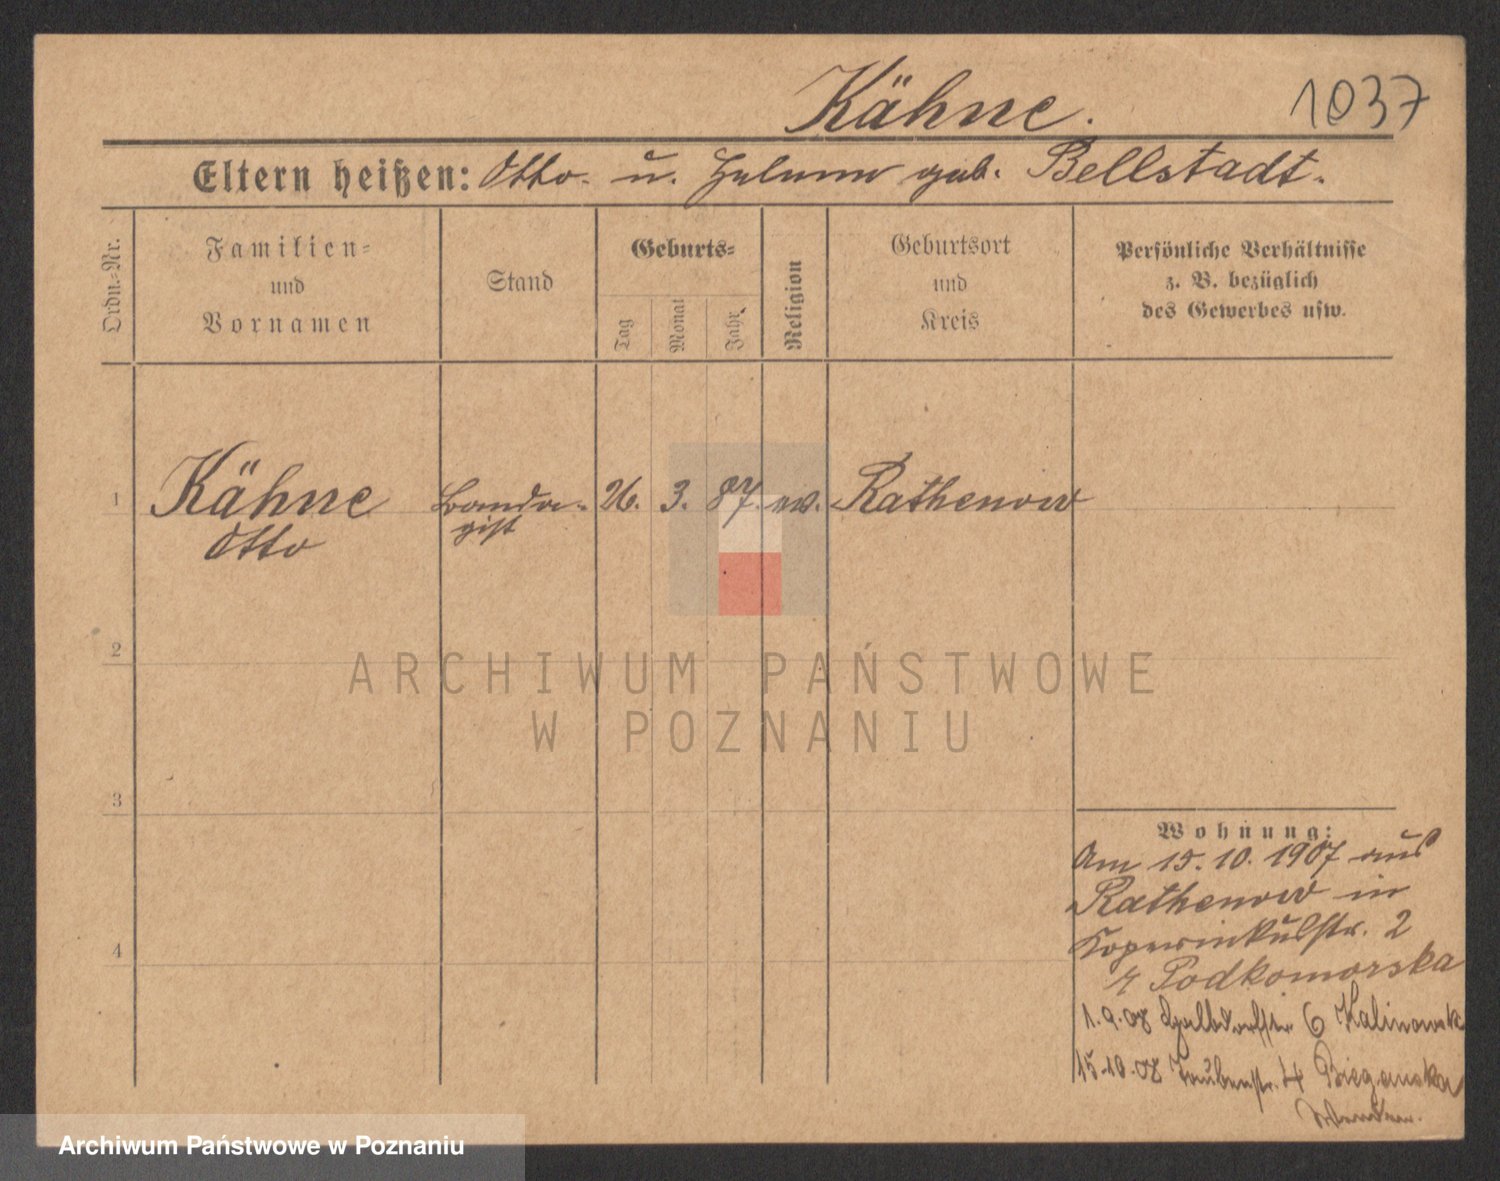 Kähne.
1037
Eltern heißen: Otto. u. Helene geb. Bellstadt.
Ordn.=Nr.
Familien=
und
Vornamen
Stand
Geburts=
Tag
Monat
Jahr
Religion
Geburtsort
und
Kreis
Persönliche Verhältnisse
z. B. bezüglich
des Gewerbes usw.
1 Kähne Banda- 26. 3. 87. ev. Rathenow
Otto gist
2
3
4
Wohnung:
Am 15.10.1907 aus
Rathenow in
Kopernikusstr. 2
r Podkomorska
1.9.08 6 Kalinowsk
15.10.08 Taubenstr. 4 Biezanska
ARCHIWUM PAŃSTWOWE
W POZNANIU
Archiwum Państwowe w Poznaniu